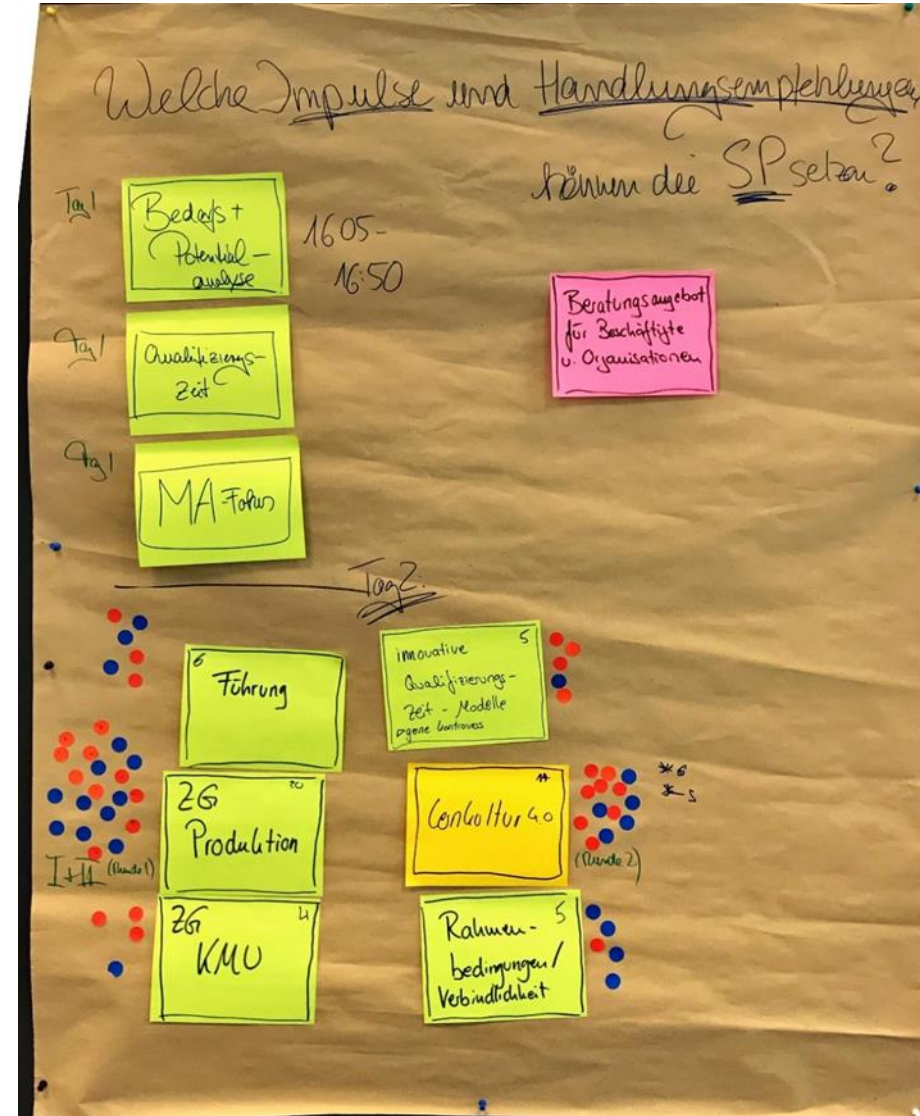 Welche Impulse und Handlungsempfehlungen
können die SP setzen?
Tag 1
Bedarfs +
Potential-
analyse
1605-
16:50
Beratungsangebot
für Beschäftigte
u. Organisationen
Tag 1
Qualifizierungs-
Zeit
Tag 1
MA-Fokus
Tag 2
6
Führung
5
innovative
Qualifizierungs-
Zeit - Modelle
gerne kontrovers
ZG 20
Produktion
I+II (Runde 1)
Lernkultur 4.0
(Runde 2)
* 6
* 5
ZG 4
KMU
5
Rahmen-
bedingungen/
Verbindlichkeit